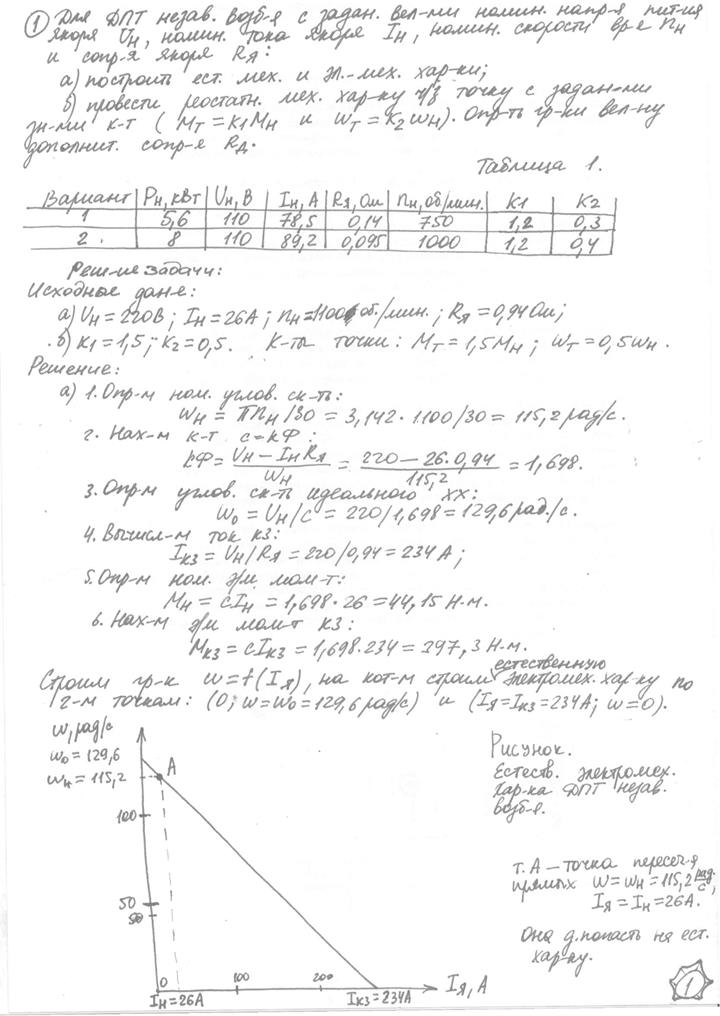 ① Для ДПТ незав. возб-я с задан. вел-ми номин. напр-я пит-ия
якоря Uн, номин. тока якоря Iн, номин. скорости вр-я nн
и сопр-я якоря Rя:
а) построить ест. мех. и эл.-мех. хар-ки;
б) провести реостатн. мех. хар-ку ч/з точку с задан-ми
зн-ми к-т (Mт = K1Mн и ωт = K2ωн). Опр-ть гр-ки вел-ну
дополнит. сопр-я Rд.
Таблица 1.
Вариант | Pн, кВт | Uн, В | Iн, А | Rя, Ом | nн, об/мин. | K1 | K2
1 | 5,6 | 110 | 78,5 | 0,14 | 750 | 1,2 | 0,3
2. | 8 | 110 | 89,2 | 0,095 | 1000 | 1,2 | 0,4
Реш-ие задачи:
Исходные дан-е:
а) Uн = 220В; Iн = 26А; nн = 1100 об./мин.; Rя = 0,94 Ом;
б) K1 = 1,5; K2 = 0,5. К-ты точки: Mт = 1,5Mн; ωт = 0,5ωн.
Решение:
а) 1. Опр-м ном. углов. ск-ть:
ωн = πnн/30 = 3,142·1100/30 = 115,2 рад/с.
2. Нах-м к-т c = kФ:
kФ = (Uн − IнRя)/ωн = (220 − 26·0,94)/115,2 = 1,698.
3. Опр-м углов. ск-ть идеального хх:
ω0 = Uн/c = 220/1,698 = 129,6 рад./с.
4. Вычисл-м ток кз:
Iкз = Uн/Rя = 220/0,94 = 234 А;
5. Опр-м ном. э/м мом-т:
Mн = cIн = 1,698·26 = 44,15 Н·м.
6. Нах-м э/м мом-т кз:
Mкз = cIкз = 1,698·234 = 397,3 Н·м.
Строим гр-к ω = f(Iя), на кот-м строим естественную электромех. хар-ку по
2-м точкам: (0; ω = ω0 = 129,6 рад/с) и (Iя = Iкз = 234А; ω = 0).
ω, рад/с
ω0 = 129,6
ωн = 115,2
A
100
50
50
0
100
200
Iя, А
Iн = 26А
Iкз = 234А
Рисунок.
Естеств. электромех.
хар-ка ДПТ незав.
возб-я.
т. А – точка пересеч-я
прямых ω = ωн = 115,2 рад/с,
Iя = Iн = 26А.
Она д. попасть на ест.
хар-ку.
1